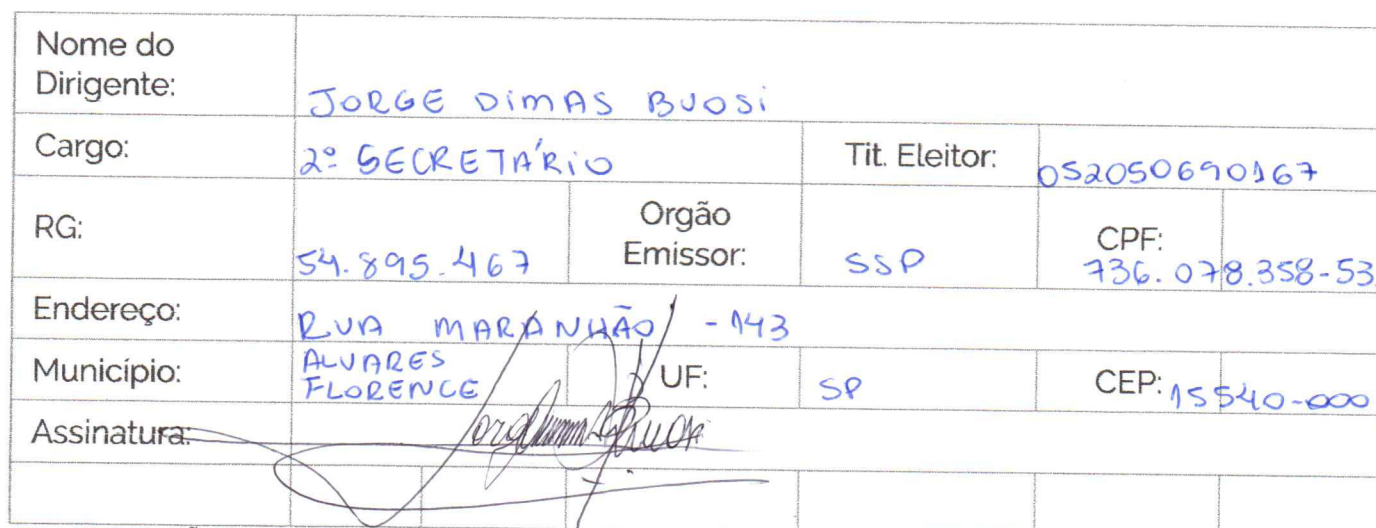 Nome do
Dirigente: JORGE DIMAS BUOSI
Cargo: 2º SECRETÁRIO Tit. Eleitor: 052050690167
RG: 54.895.467 Orgão Emissor: SSP CPF: 736.078.358-53
Endereço: RUA MARANHÃO - 143
Município: ALVARES FLORENCE UF: SP CEP: 15540-000
Assinatura: